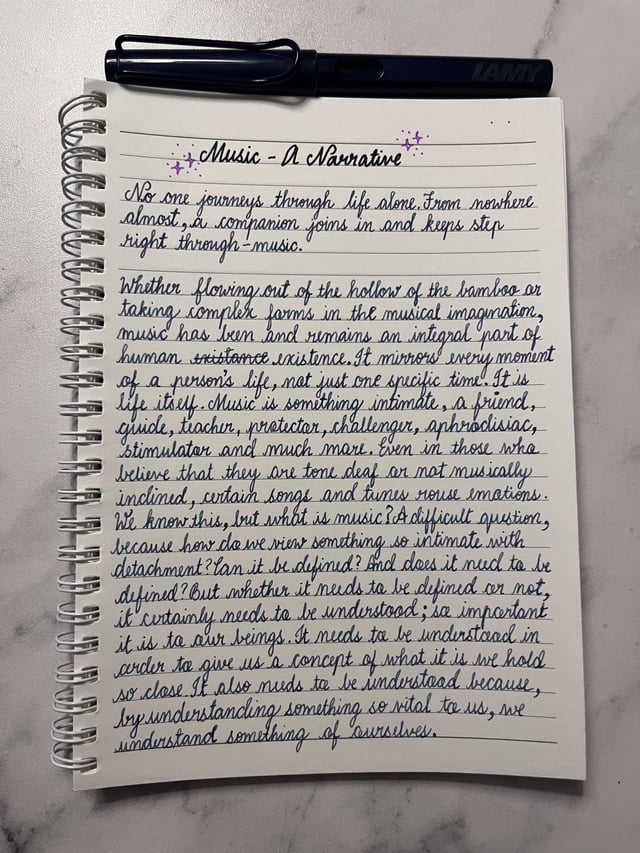 LAMY
Music - A Narrative
No one journeys through life alone. From nowhere
almost, a companion joins in and keeps step
right through-music.
Whether flowing out of the hollow of the bamboo or
taking complex forms in the musical imagination,
music has been and remains an integral part of
human existance existence. It mirrors every moment
of a person's life, not just one specific time. It is
life itself. Music is something intimate, a friend,
guide, teacher, protector, challenger, aphrodisiac,
stimulator and much more. Even in those who
believe that they are tone deaf or not musically
inclined, certain songs and tunes rouse emotions.
We know this, but what is music? A difficult question,
because how do we view something so intimate with
detachment? Can it be defined? And does it need to be
defined? But whether it needs to be defined or not,
it certainly needs to be understood; so important
it is to our beings. It needs to be understood in
order to give us a concept of what it is we hold
so close. It also needs to be understood because,
by understanding something so vital to us, we
understand something of ourselves.